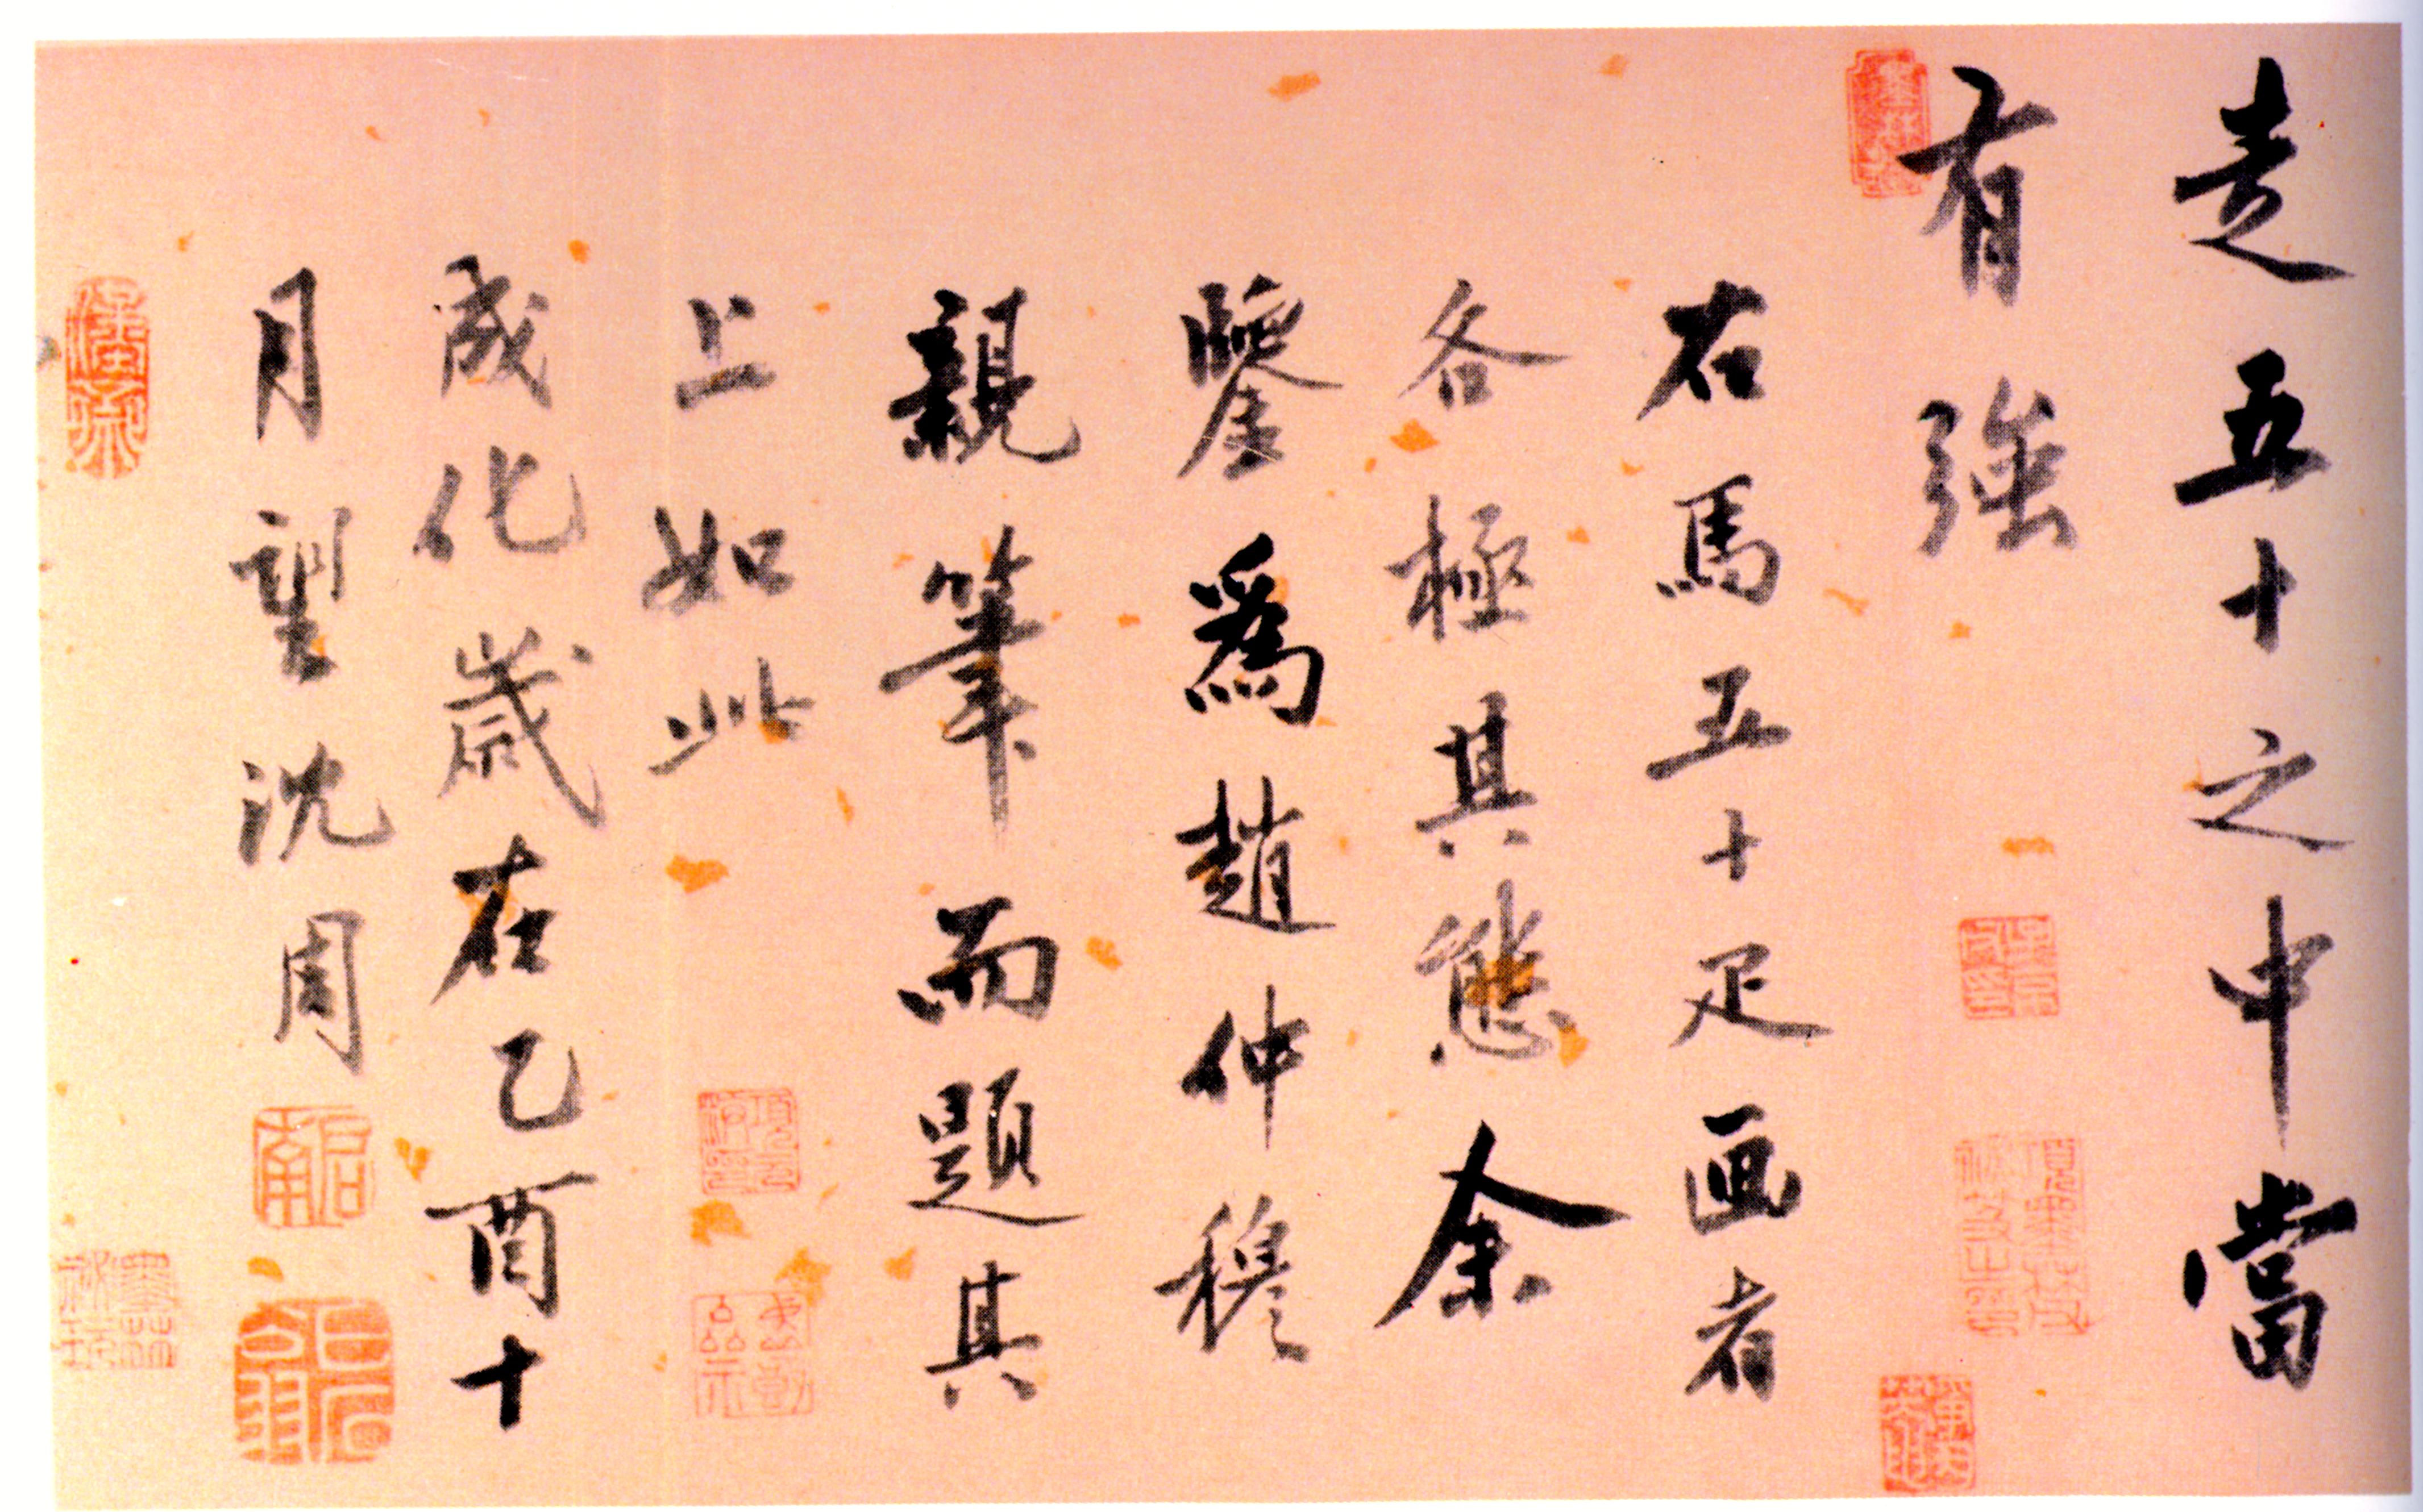 走五十之中當
有強
右馬五十疋画者
各極其態余
鑒爲趙仲穆
親筆而題其
上如此
成化歲在乙酉十
月望沈周
啟南